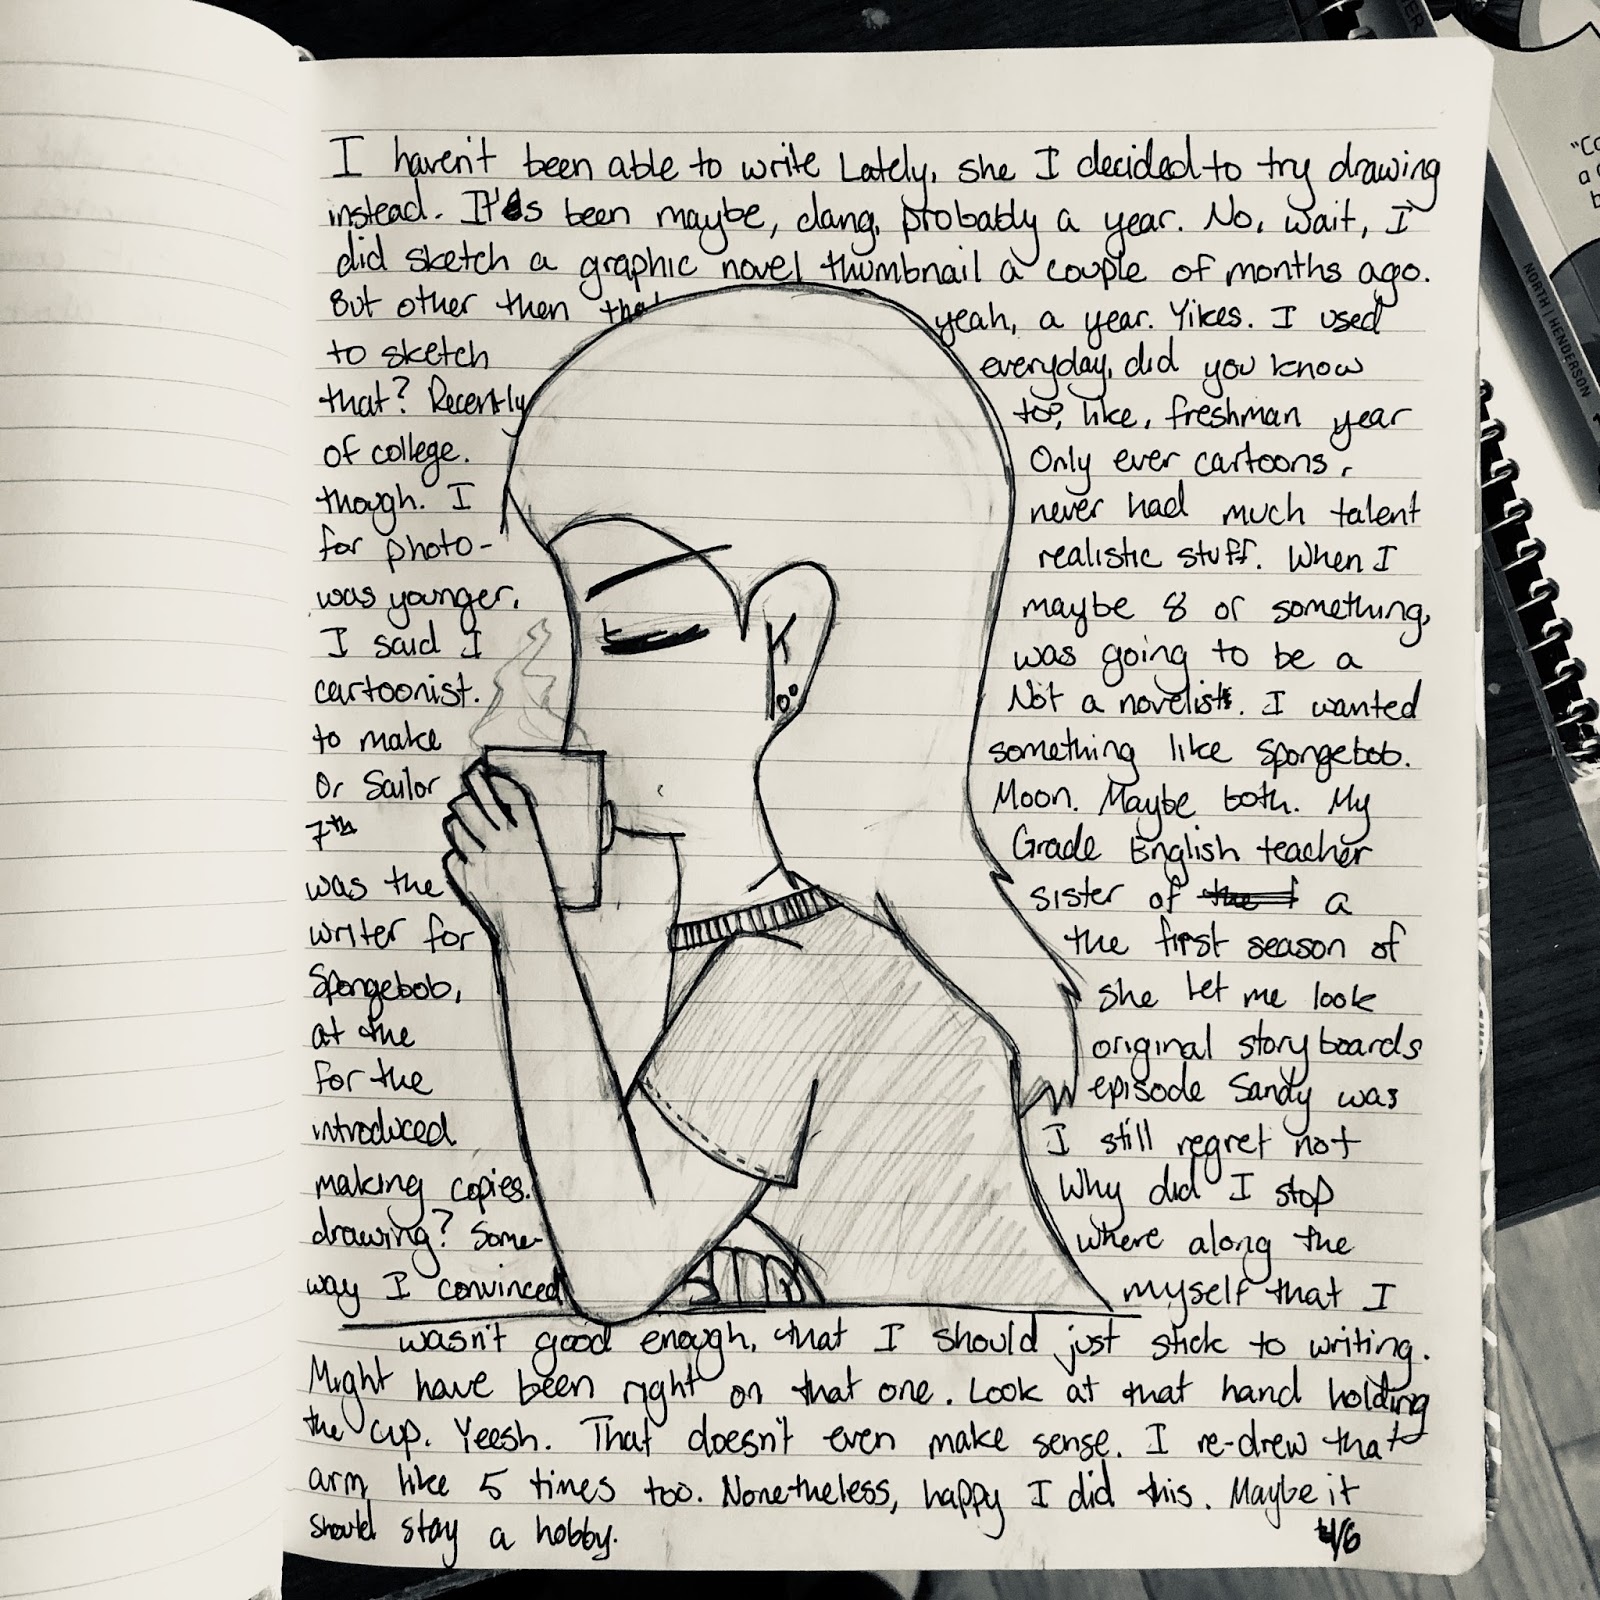 I haven't been able to write Lately, she I decided to try drawing
instead. It's been maybe, dang, probably a year. No, wait, I
did sketch a graphic novel thumbnail a couple of months ago.
But other then that yeah, a year. Yikes. I used
to sketch everyday, did you know
that? Recently too, like, freshman year
of college. Only ever cartoons,
though. I never had much talent
for photo- realistic stuff. When I
was younger, maybe 8 or something,
I said I was going to be a
cartoonist. Not a novelist. I wanted
to make something like Spongebob.
Or Sailor Moon. Maybe both. My
7th Grade English teacher
was the sister of a
writer for the first season of
Spongebob, she let me look
at the original storyboards
for the episode Sandy was
introduced. I still regret not
making copies. Why did I stop
drawing? Some- where along the
way I convinced myself that I
wasn't good enough, that I should just stick to writing.
Might have been right on that one. Look at that hand holding
the cup. Yeesh. That doesn't even make sense. I re-drew that
arm like 5 times too. Nonetheless, happy I did this. Maybe it
should stay a hobby. 4/6
NORTH | HENDERSON